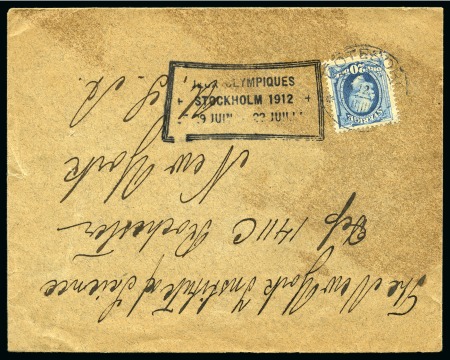 JEUX OLYMPIQUES
STOCKHOLM 1912
29 JUIN - 22 JUILLET
20
SVERIGE
The New York Institute of Science
Dep 1411C Rochester
New York
U. S. A.